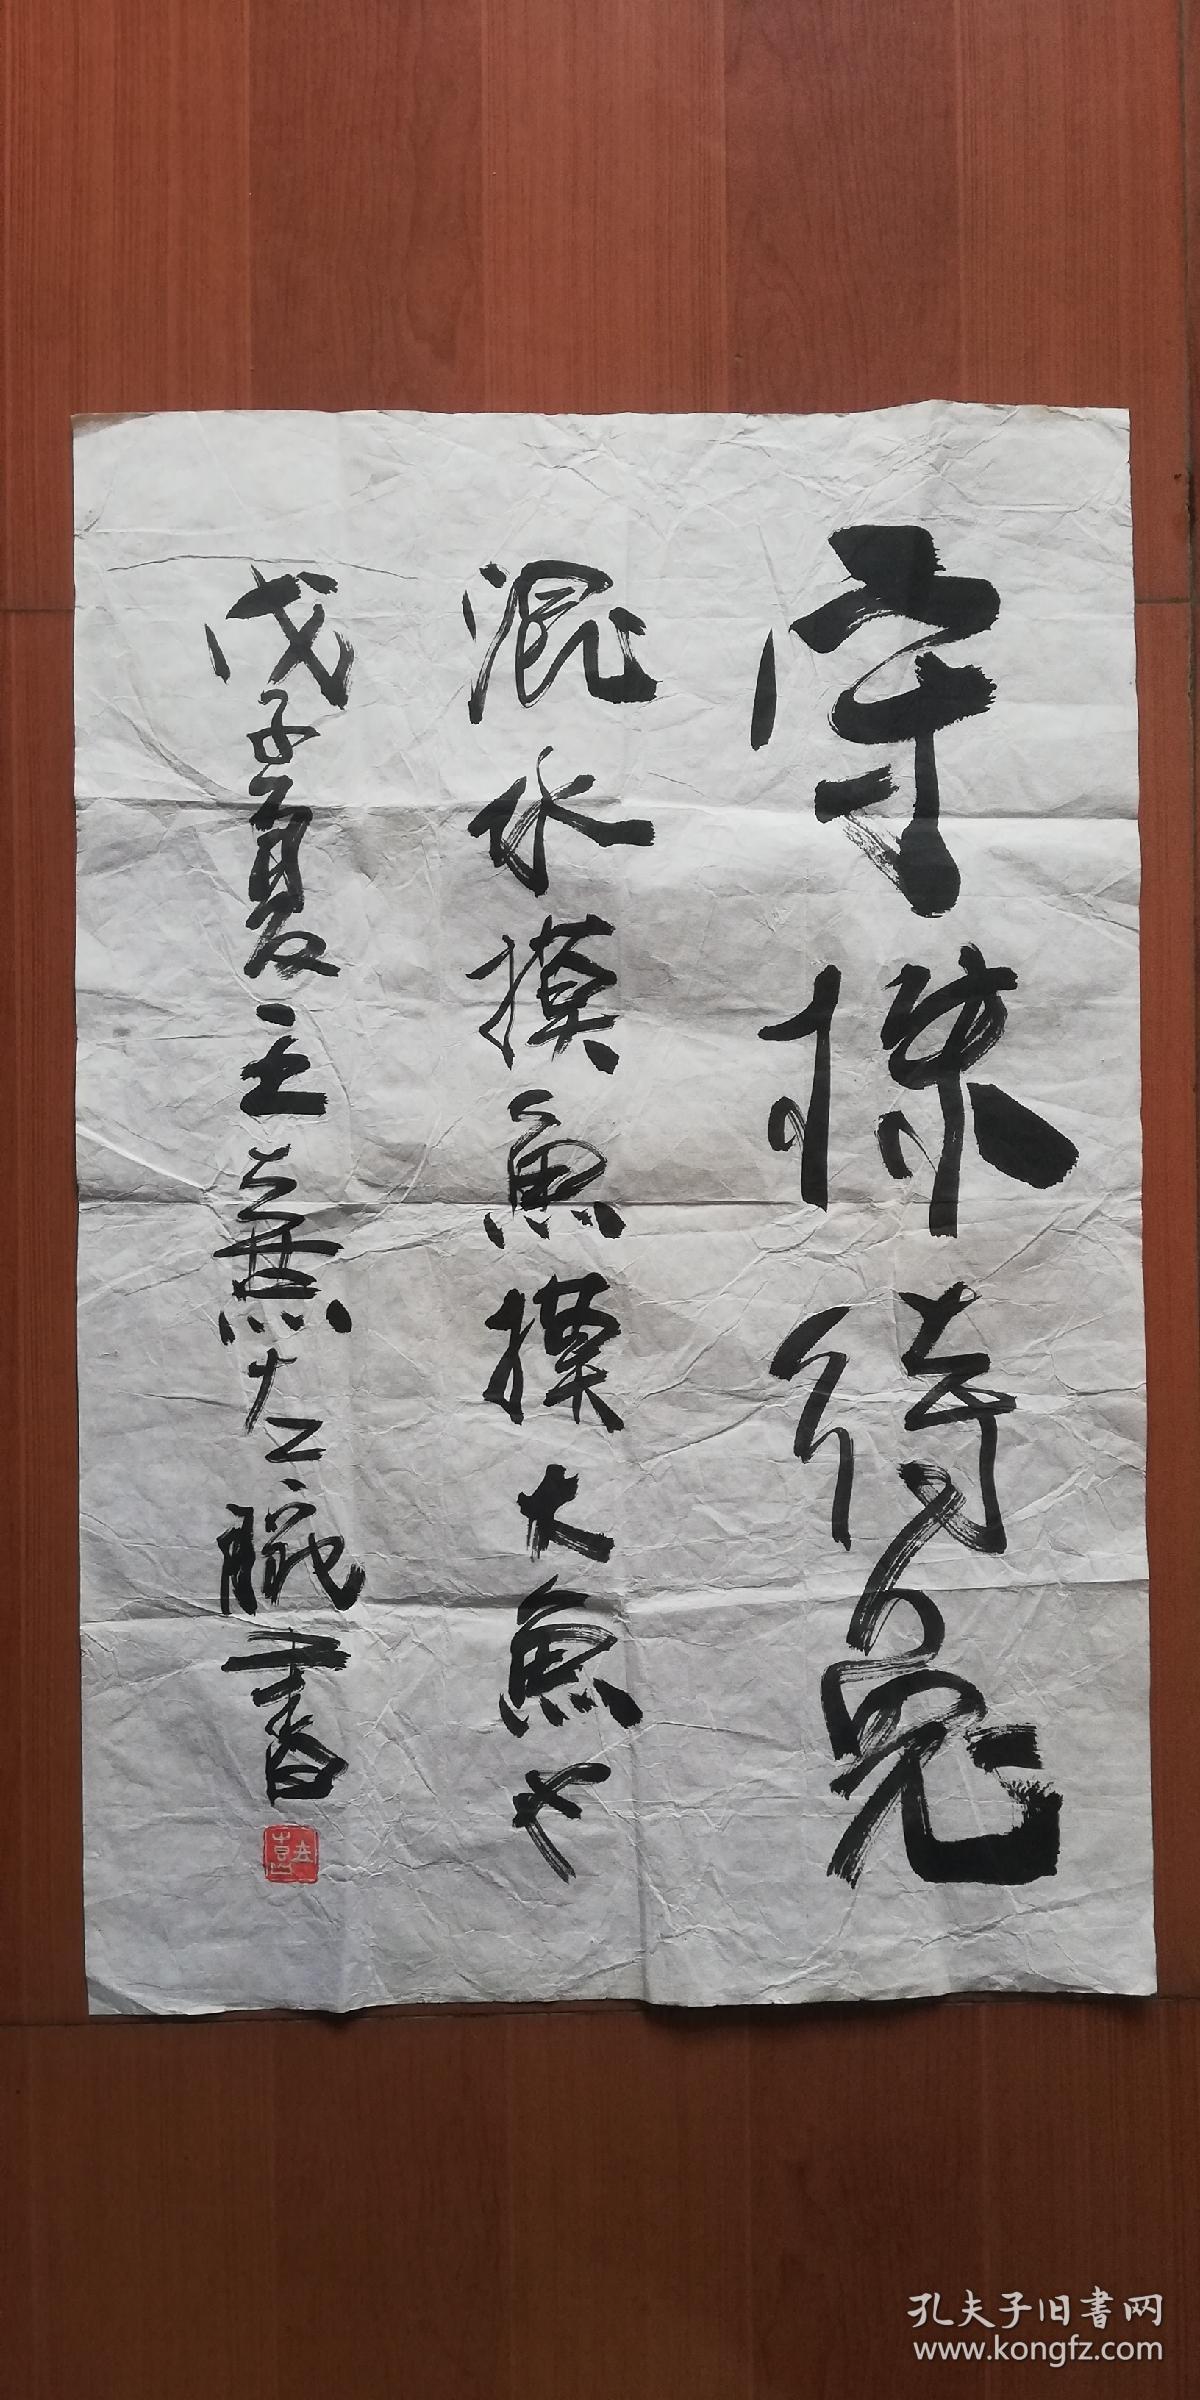 守株待兔
混水摸魚摸大魚也
戊子夏王熹左腕書
孔夫子旧書网
www.kongfz.com